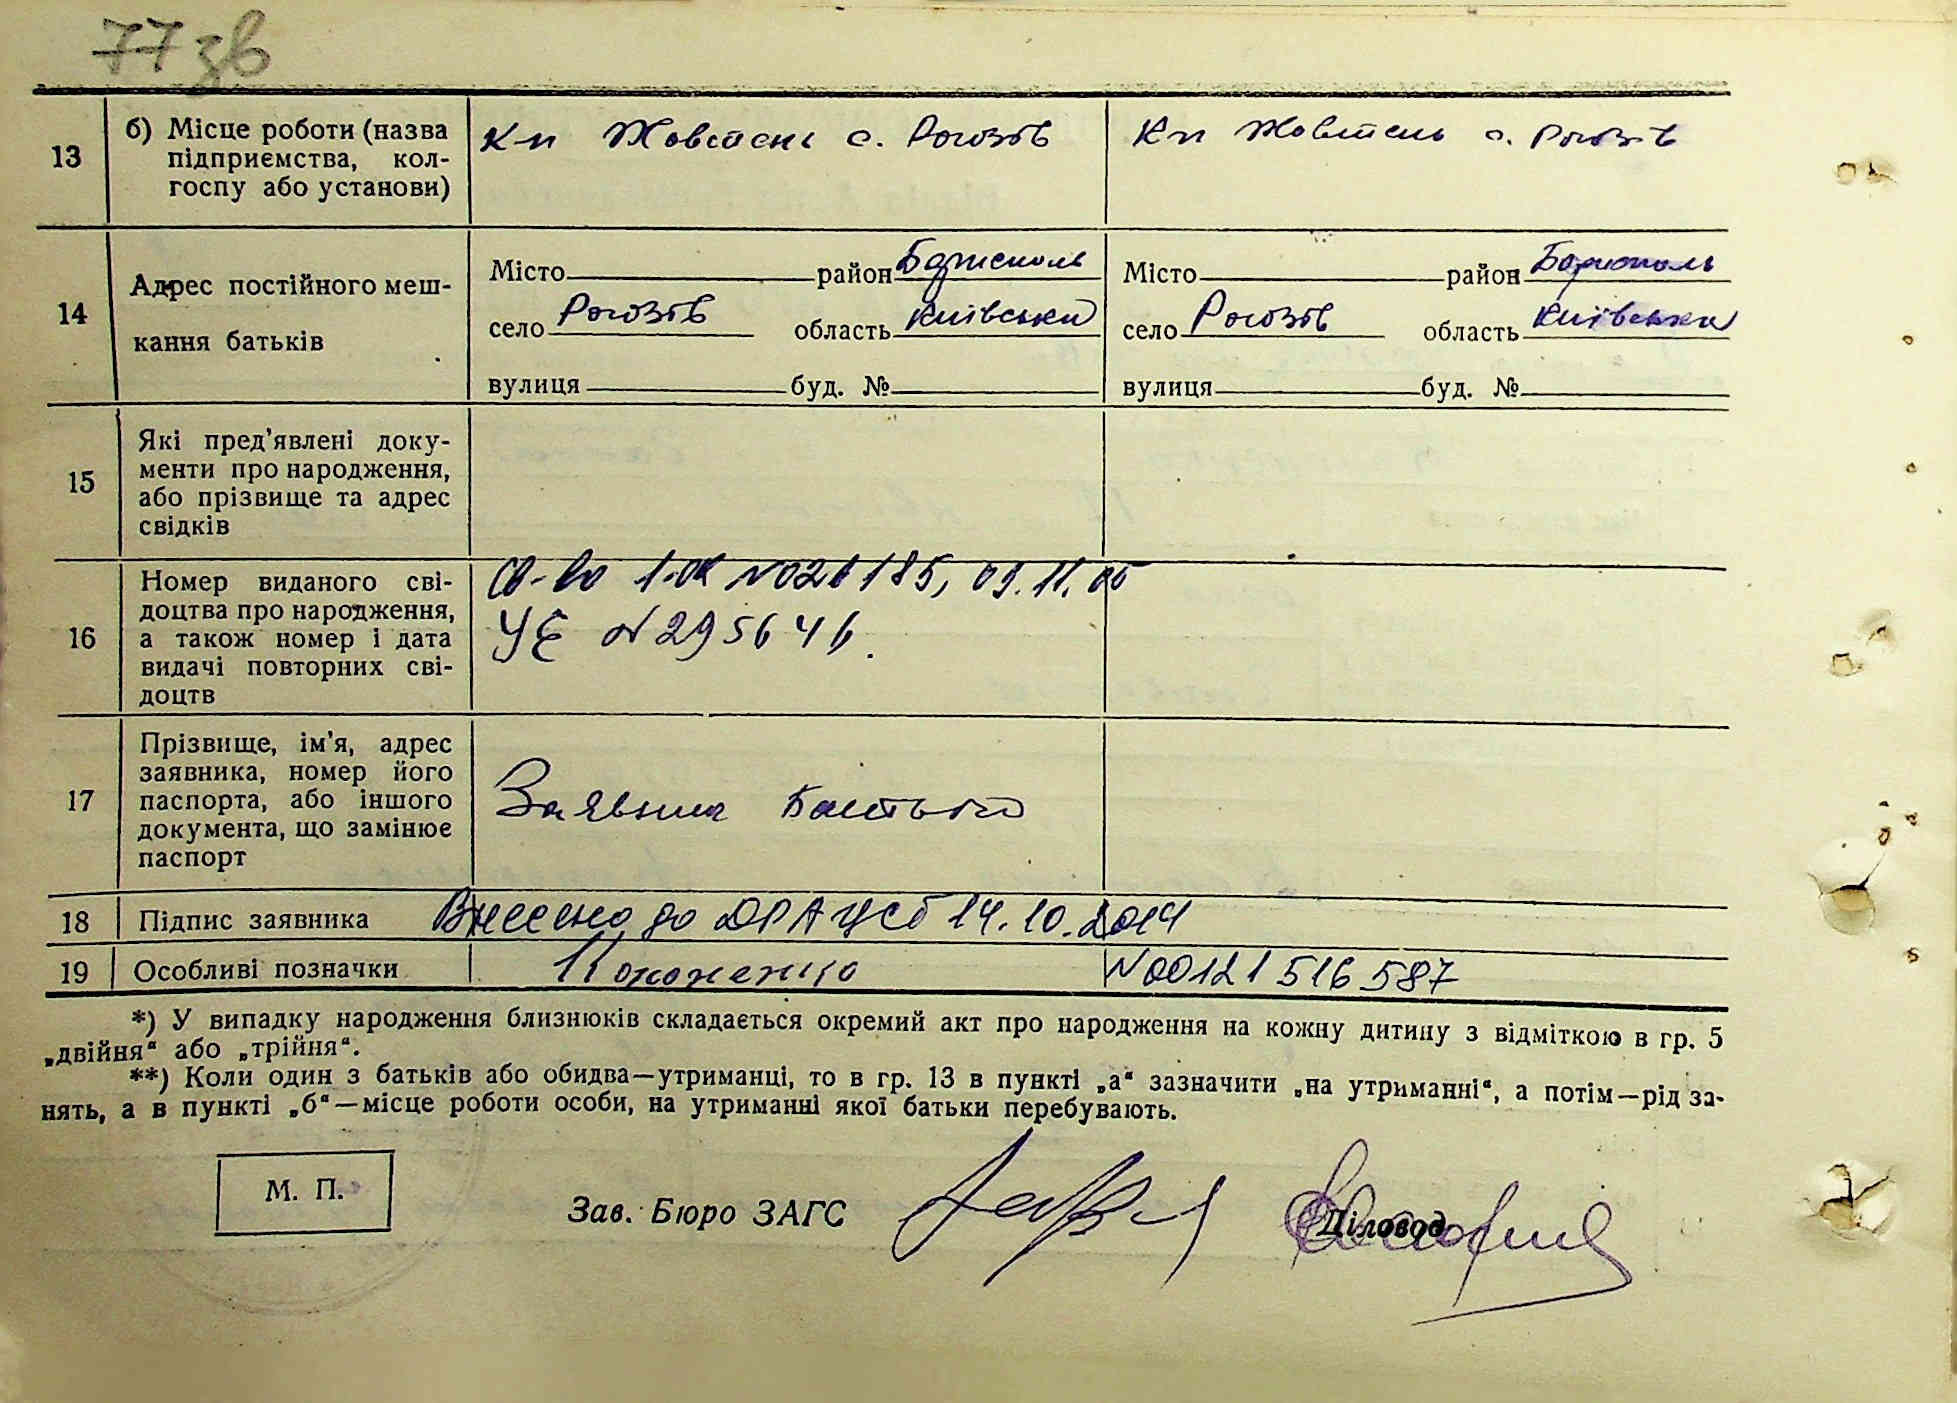 77 зв
13 б) Місце роботи (назва
підприємства, кол-
госпу або установи)
Кп Жовтень с. Рогозів Кп Жовтень с. Рогозів
14 Адрес постійного меш-
кання батьків
Місто район Бориспіль Місто район Бориспіль
село Рогозів область Київська село Рогозів область Київська
вулиця буд. № вулиця буд. №
15 Які пред'явлені доку-
менти про народження,
або прізвище та адрес
свідків
16 Номер виданого сві-
доцтва про народження,
а також номер і дата
видачі повторних сві-
доцтв
св-во 1-ОК N021185, 09.11.05
УЄ N295646.
17 Прізвище, ім'я, адрес
заявника, номер його
паспорта, або іншого
документа, що замінює
паспорт
Заявила батько
18 Підпис заявника Внесено до ДРАЦСГ 14.10.2014
19 Особливі позначки N00121516587
*) У випадку народження близнюків складається окремий акт про народження на кожну дитину з відміткою в гр. 5
„двійня“ або „трійня“.
**) Коли один з батьків або обидва—утриманці, то в гр. 13 в пункті „а“ зазначити „на утриманні“, а потім—рід за-
нять, а в пункті „б“—місце роботи особи, на утриманні якої батьки перебувають.
М. П.
Зав. Бюро ЗАГС Діловод